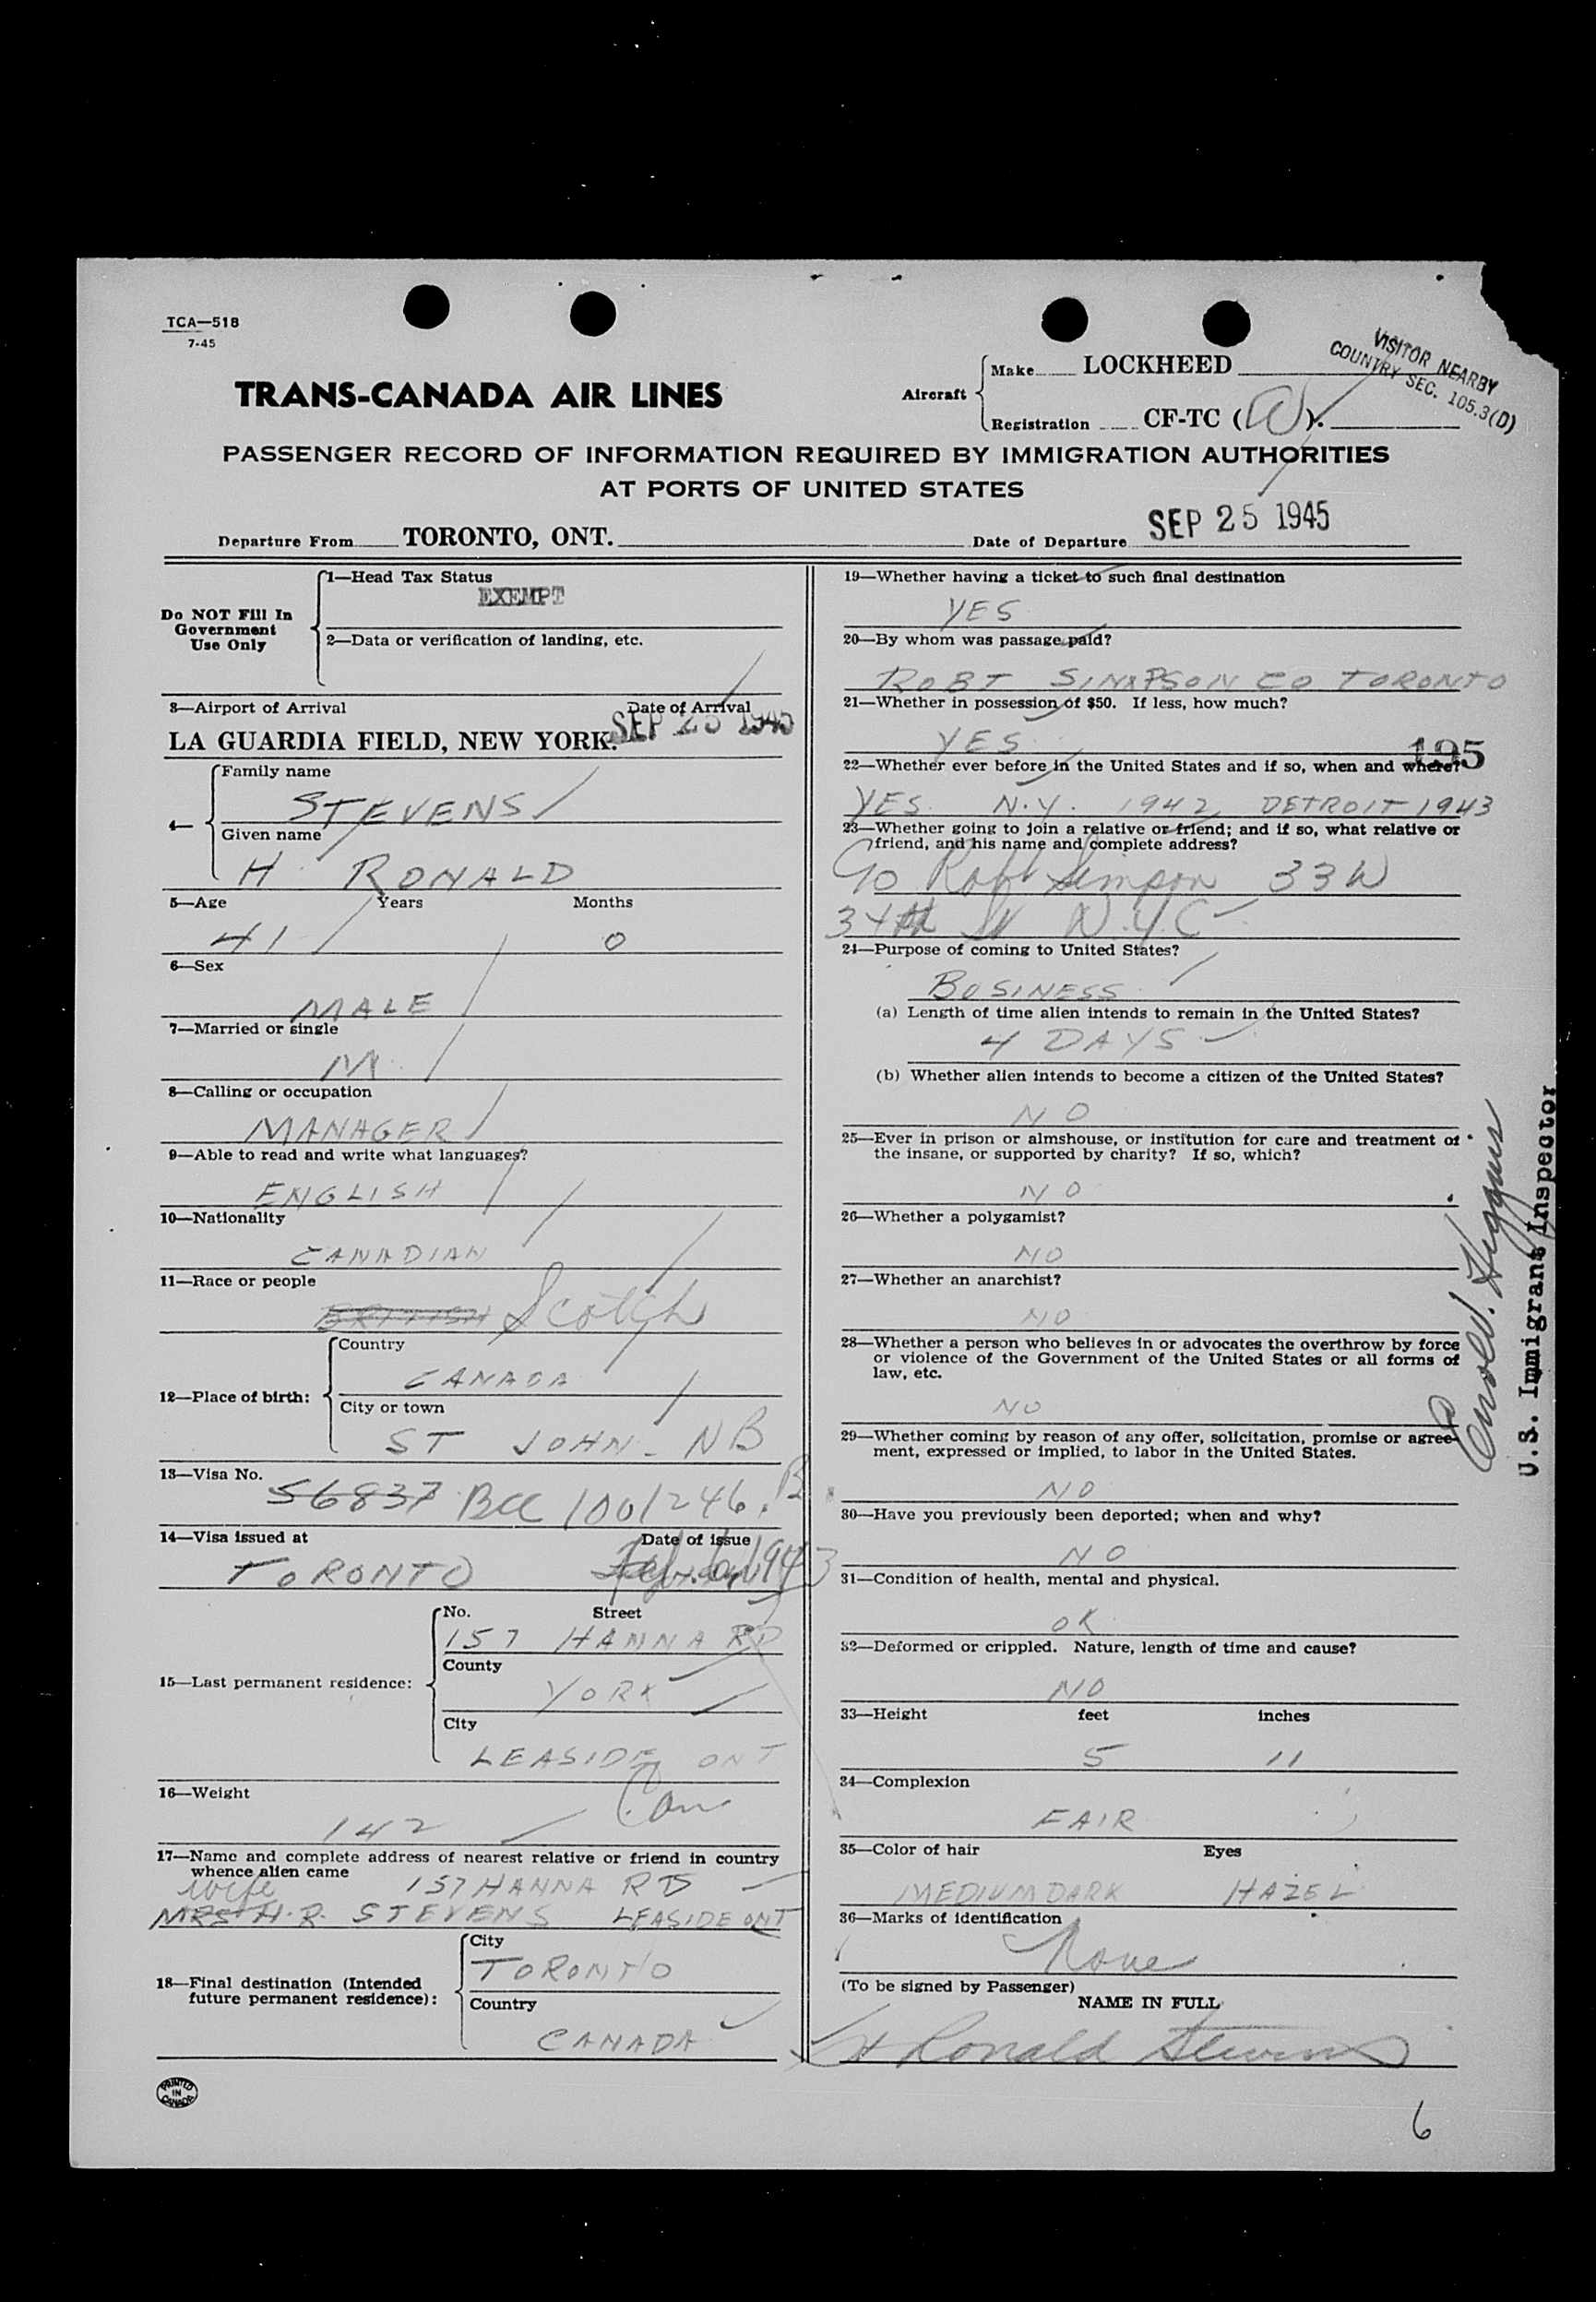 TCA—518
7-45
VISITOR NEARBY
COUNTRY SEC. 105.3(D)
TRANS-CANADA AIR LINES
Aircraft
Make LOCKHEED
Registration CF-TC ( ).
PASSENGER RECORD OF INFORMATION REQUIRED BY IMMIGRATION AUTHORITIES
AT PORTS OF UNITED STATES
Departure From TORONTO, ONT. Date of Departure SEP 25 1945
Do NOT Fill In
Government
Use Only
1—Head Tax Status
EXEMPT
2—Data or verification of landing, etc.
3—Airport of Arrival Date of Arrival
LA GUARDIA FIELD, NEW YORK. SEP 25 1945
4—
Family name
STEVENS
Given name
H. RONALD
5—Age Years Months
41 0
6—Sex
MALE
7—Married or single
M.
8—Calling or occupation
MANAGER
9—Able to read and write what languages?
ENGLISH
10—Nationality
CANADIAN
11—Race or people
BRITISH Scotch
12—Place of birth:
Country
CANADA
City or town
ST JOHN - NB
13—Visa No.
56837 BCC 1001246.
14—Visa issued at Date of issue
TORONTO 1943
15—Last permanent residence:
No. Street
157 HANNA RD
County
YORK
City
LEASIDE ONT
Can
16—Weight
142
17—Name and complete address of nearest relative or friend in country
whence alien came
wife 157 HANNA RD
MRS H.R. STEVENS LEASIDE ONT
18—Final destination (Intended
future permanent residence):
City
TORONTO
Country
CANADA
PRINTED
IN
CANADA
19—Whether having a ticket to such final destination
YES
20—By whom was passage paid?
ROBT SIMPSON CO TORONTO
21—Whether in possession of $50. If less, how much?
YES
195
22—Whether ever before in the United States and if so, when and where?
YES. N.Y. 1942 DETROIT 1943
23—Whether going to join a relative or friend; and if so, what relative or
friend, and his name and complete address?
c/o Robt Simpson 33 W
34th St N.Y.C
24—Purpose of coming to United States?
BUSINESS
(a) Length of time alien intends to remain in the United States?
4 DAYS
(b) Whether alien intends to become a citizen of the United States?
NO
25—Ever in prison or almshouse, or institution for care and treatment of
the insane, or supported by charity? If so, which?
NO
26—Whether a polygamist?
NO
27—Whether an anarchist?
NO
28—Whether a person who believes in or advocates the overthrow by force
or violence of the Government of the United States or all forms of
law, etc.
NO
29—Whether coming by reason of any offer, solicitation, promise or agree-
ment, expressed or implied, to labor in the United States.
NO
30—Have you previously been deported; when and why?
NO
31—Condition of health, mental and physical.
OK
32—Deformed or crippled. Nature, length of time and cause?
NO
33—Height feet inches
5 11
34—Complexion
FAIR
35—Color of hair Eyes
MEDIUM DARK HAZEL
36—Marks of identification
None
(To be signed by Passenger)
NAME IN FULL
H Ronald Stevens
Higgins
U.S. Immigrant Inspector
6